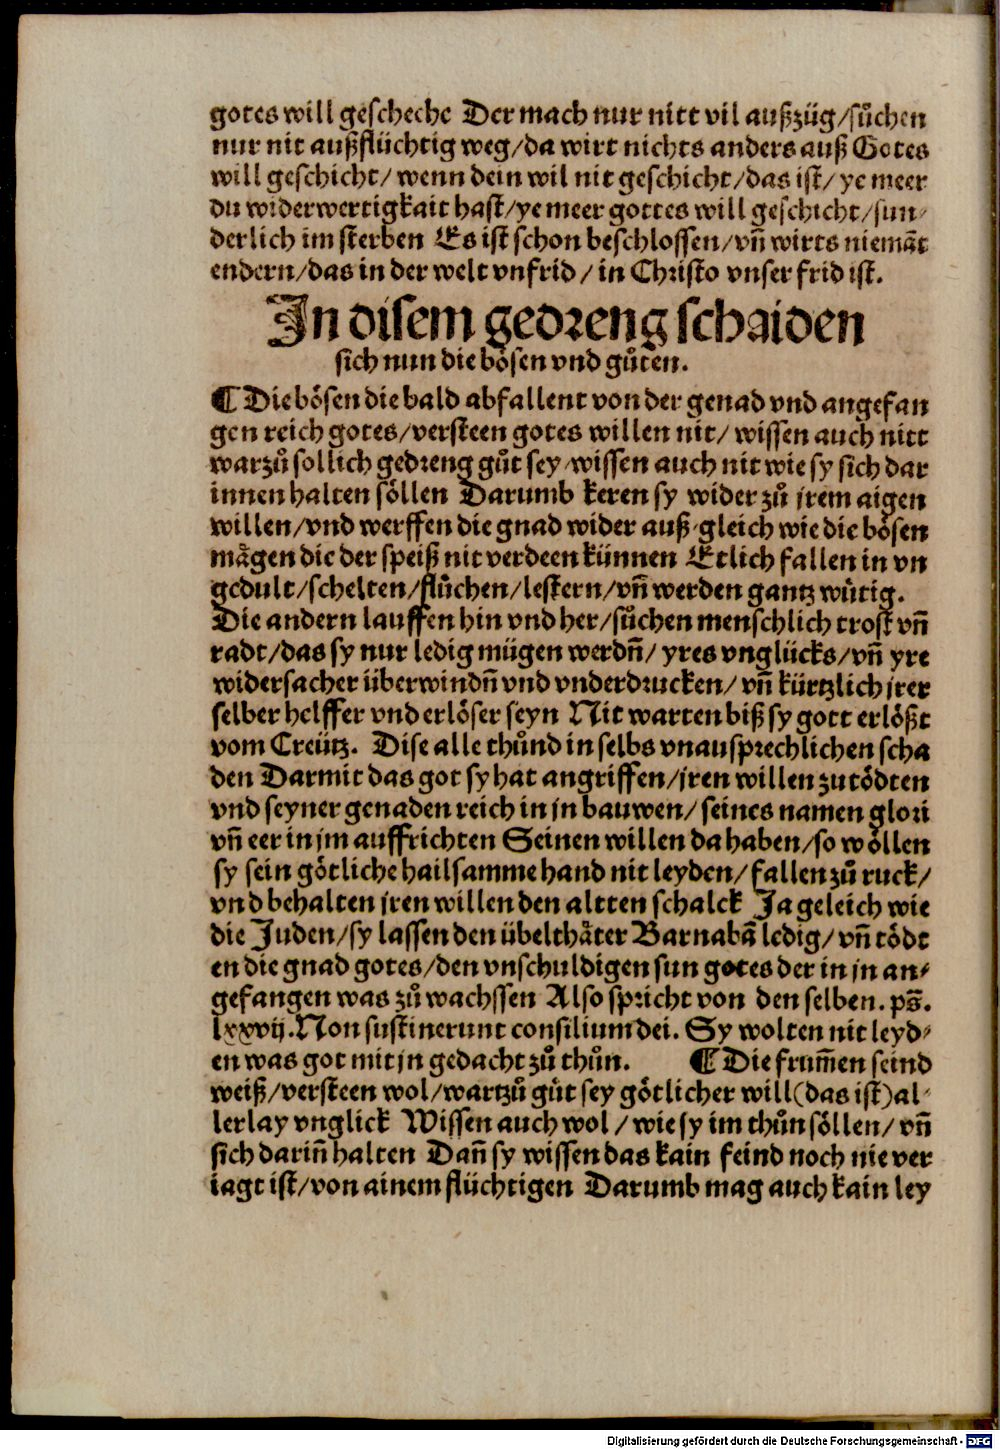 gotes will gescheche Der mach nur nitt vil außzüg/sůchen
nur nit außflüchtig weg/da wirt nichts anders auß Gotes
will geschicht/ wenn dein wil nit geschicht/das ist/ ye meer
du widerwertigkait hast/ye meer gottes will geschicht/sun⸗
derlich im sterben Es ist schon beschlossen/vn̄ wirts niemāt
endern/das in der welt vnfrid / in Christo vnser frid ist.
In disem gedreng schaiden
sich nun die bösen vnd gůten.
¶ Die bösen die bald abfallent von der genad vnd angefan
gen reich gotes/versteen gotes willen nit/ wissen auch nitt
warzů sollich gedreng gůt sey/wissen auch nit wie sy sich dar
innen halten söllen Darumb keren sy wider zů jrem aigen
willen/vnd werffen die gnad wider auß/gleich wie die bösen
mågen die der speiß nit verdeen künnen Etlich fallen in vn
gedult/schelten/flůchen/lestern/vn̄ werden gantz wůtig.
Die andern lauffen hin vnd her/sůchen menschlich trost vn̄
radt/das sy nur ledig mügen werdn̄/ yres vnglücks/vn̄ yre
widersacher überwindn̄ vnd vnderdrucken/ vn̄ kürtzlich jrer
selber helffer vnd erlöser seyn Nit warten biß sy gott erlößt
vom Creütz. Dise alle thůnd in selbs vnausprechlichen scha
den Darmit das got sy hat angriffen/jren willen zu tödten
vnd seyner genaden reich in jn bauwen/ seines namen glori
vn̄ eer in jm auffrichten Seinen willen da haben/so wöllen
sy sein götliche hailsamme hand nit leyden/ fallen zů ruck/
vnd behalten jren willen den altten schalck Ja geleich wie
die Juden/sy lassen den übelthåter Barnabā ledig/ vn̄ tödt
en die gnad gotes/den vnschuldigen sun gotes der in jn an⸗
gefangen was zů wachssen Also spricht von den selben. ps̄.
lxxvij. Non sustinerunt consilium dei. Sy wolten nit leyd⸗
en was got mit jn gedacht zů thůn. ¶ Die frum̄en seind
weiß/versteen wol/wartzů gůt sey götlicher will(das ist)al⸗
lerlay vnglick Wissen auch wol / wie sy im thůn söllen/ vn̄
sich darin̄ halten Dan̄ sy wissen das kain feind noch nie ver
iagt ist/von ainem flüchtigen Darumb mag auch kain ley
Digitalisierung gefördert durch die Deutsche Forschungsgemeinschaft - DFG